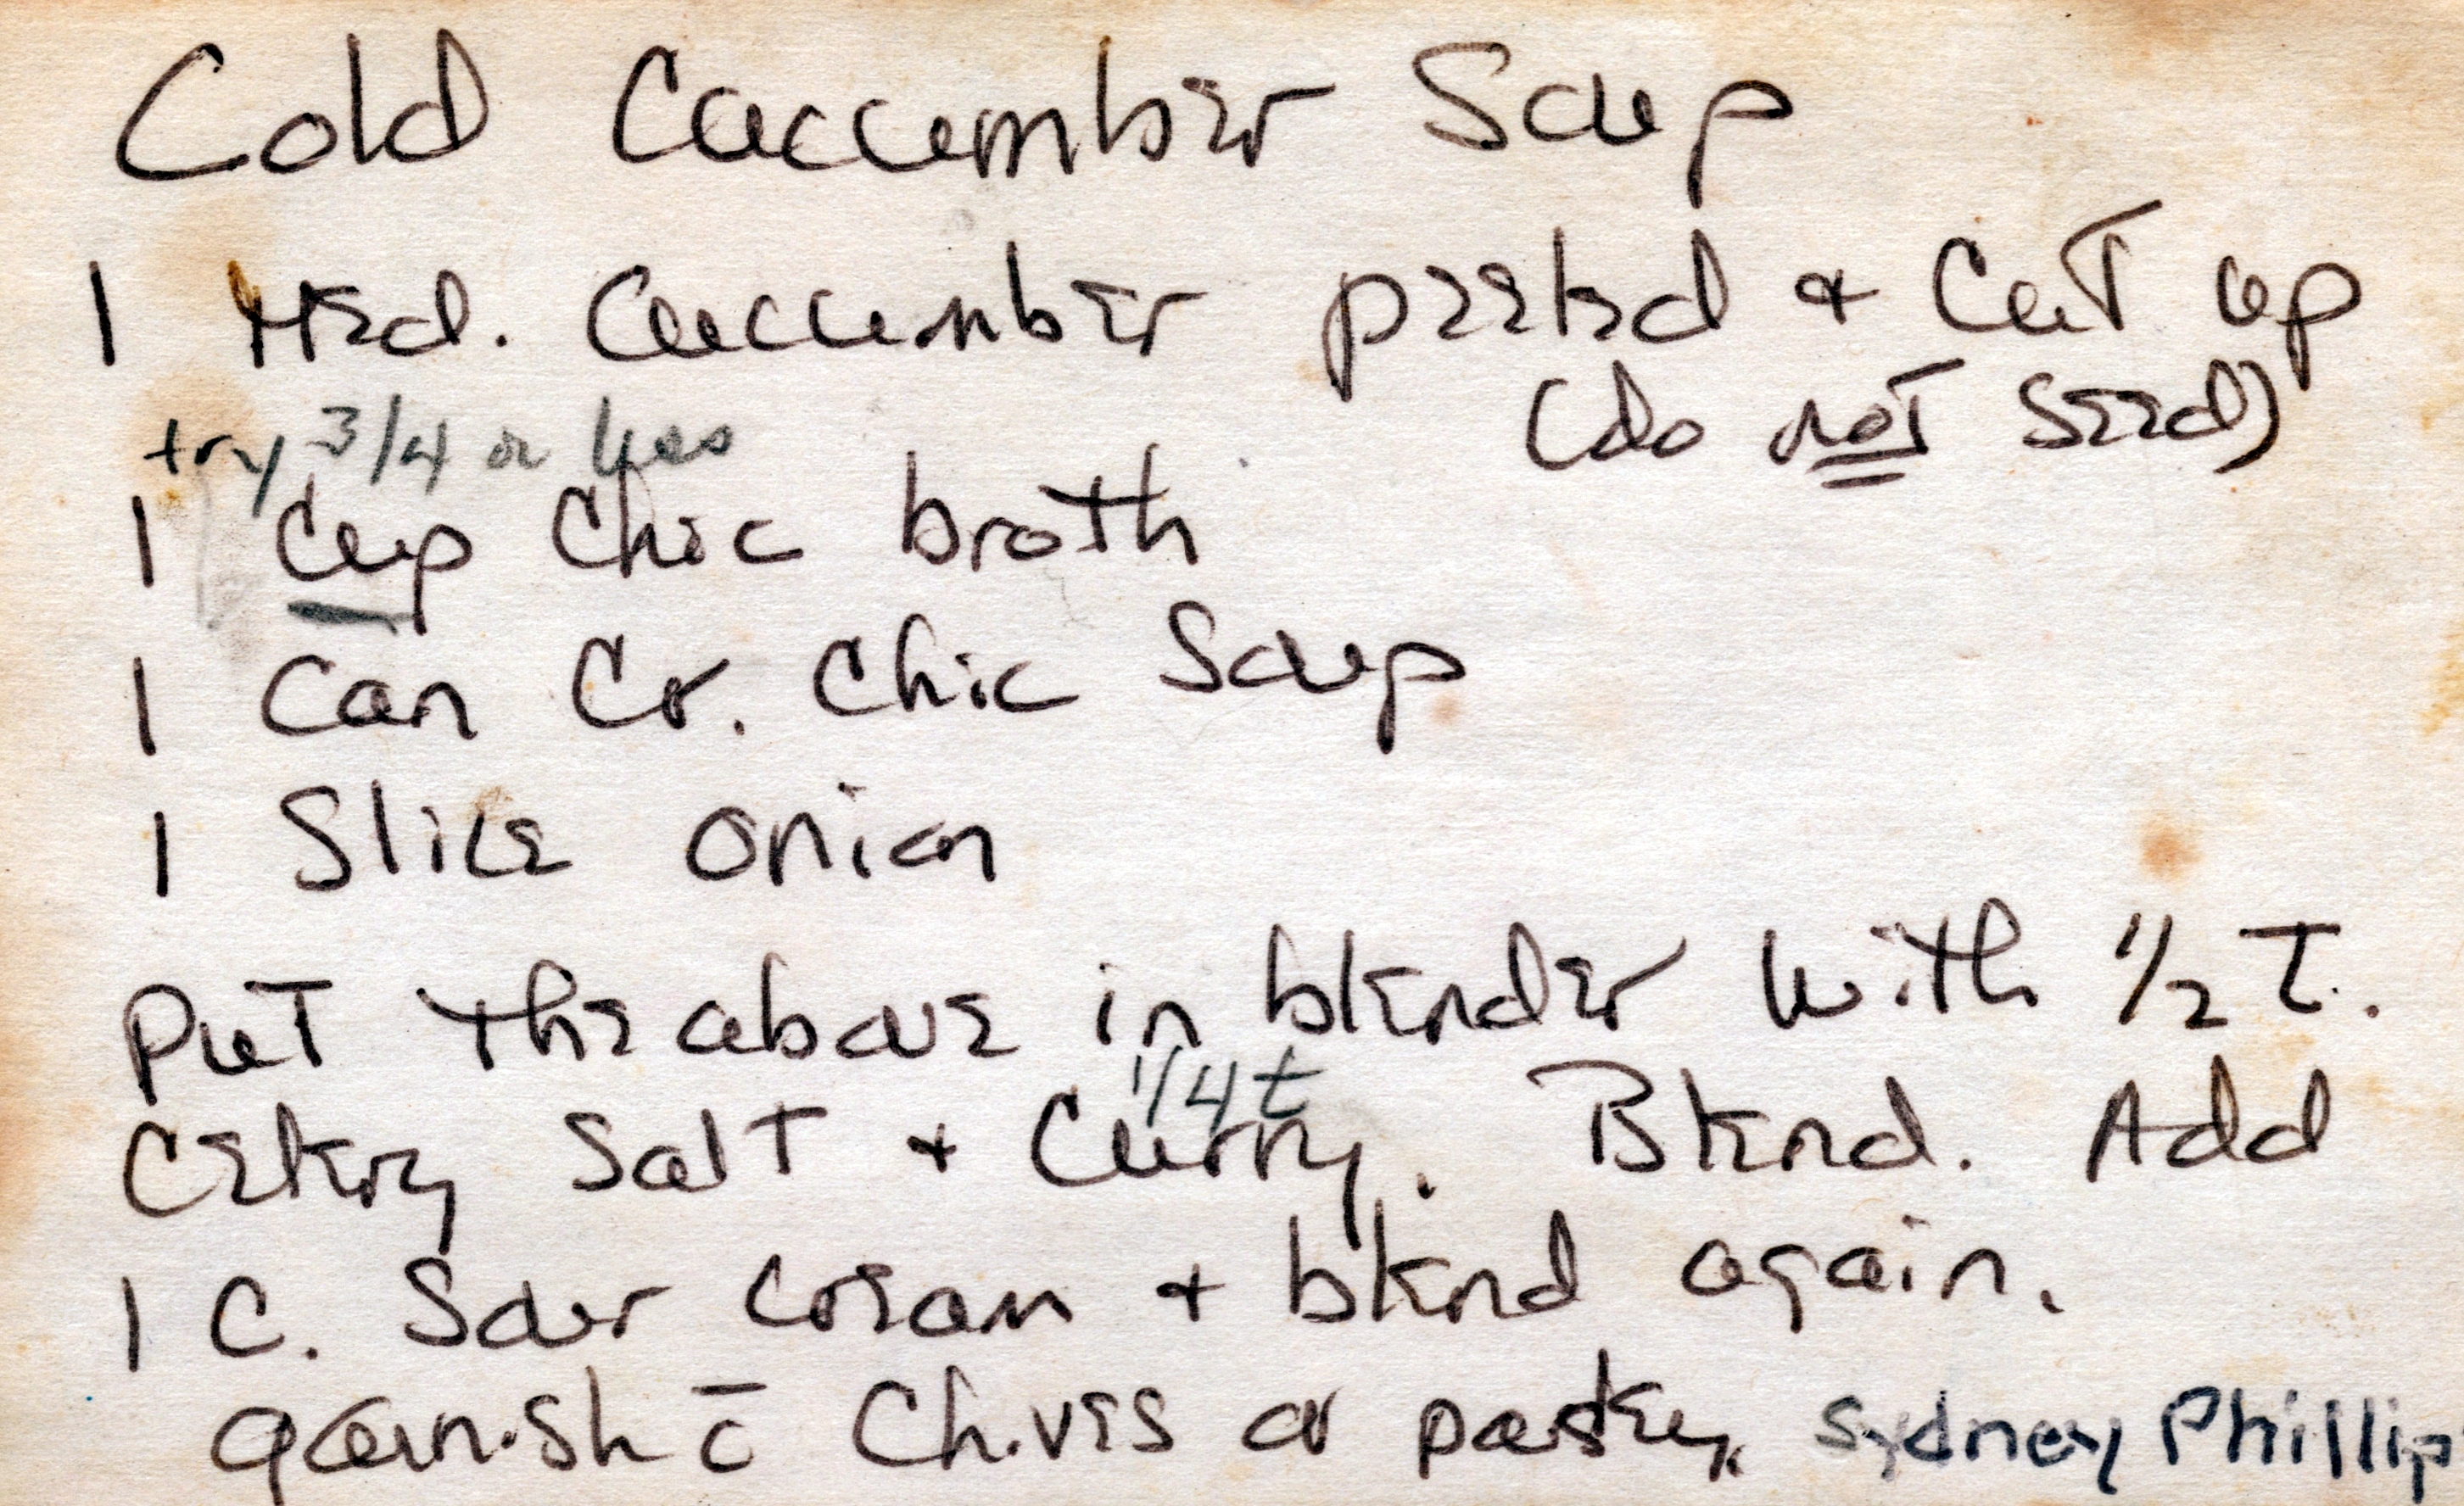 Cold Cucumber Soup
1 Med. Cucumber peeled & Cut up
(do not Seed)
try 3/4 or less
1 Cup Chic broth
1 Can Cr. Chic Soup
1 Slice onion
Put the above in blender with 1/2 T.
1/4 t
Celery Salt + Curry. Blend. Add
1 C. Sour cream + blend again.
garnish c̄ Chives or parsley. Sydney Phillip